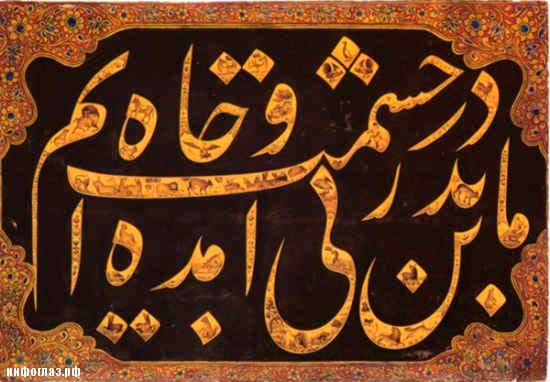 ما بدین در نه پی حشمت و جاه آمده ایم
инфоглаз.рф